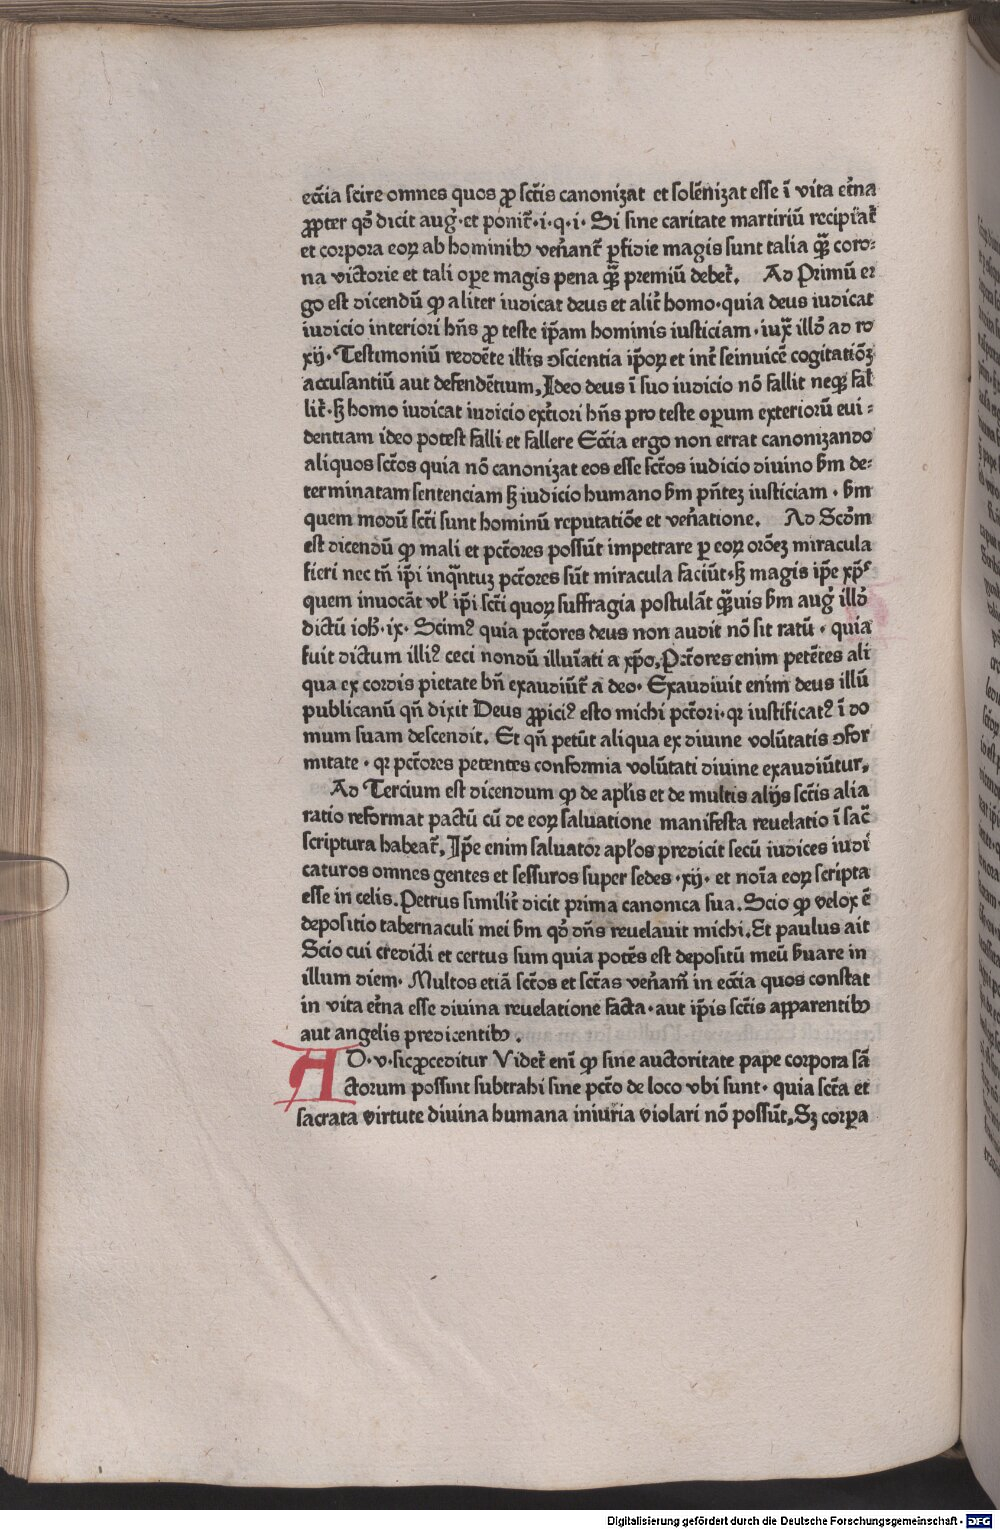 ecc̄ia scire omnes quos ꝓ sct̄is canonizat et solēnizat esse ī vita et̄na
ꝓpter qd̓ dicit aug̓ et ponit̄·i·q·i· Si sine caritate martiriū recipiat̄
et corpora eoꝝ ab hominibꝰ ven̄ant̄ ꝑfidie magis sunt talia qꝫ̄ coro⸗
na victorie et tali oꝑe magis pena qꝫ̄ premiū debet̄. Ad Primū er
go est dicendū ꝙ aliter iudicat deus et alit̄ homo·quia deus iudicat
iudicio interiori hn̄s ꝓ teste ip̄am hominis iusticiam·iux̄ illd̓ ad ro
xij· Testimoniū reddēte illis ꝯscientia ip̄oꝝ et int̄ seinuicē cogitatiōꝫ
accusantiū aut defendētium, Ideo deus ī suo iudicio nō fallit neqꝫ fal
lit̄·sꝫ homo iudicat iudicio ext̄iori hn̄s pro teste oꝑum exteriorū eui⸗
dentiam ideo potest falli et fallere Ecc̄ia ergo non errat canonizando
aliquos sct̄os quia nō canonizat eos esse sct̄os iudicio diuino ẜm de⸗
terminatam sentenciam sꝫ iudicio humano ẜm pn̄teꝫ iusticiam· ẜm
quem modū sct̄i sunt hominū reputatiōe et ven̄atione. Ad Scd̄m
est dicendū ꝙ mali et pct̄ores possūt impetrare ꝑ eoꝝ orōeꝫ miracula
fieri nec tn̄ ip̄i inqn̄tuꝫ pct̄ores sūt miracula faciūt·sꝫ magis ip̄e xp̄s
quem inuocāt vl̓ ip̄i sct̄i quoꝝ suffragia postulāt qꝫ̄uis ẜm aug̓ illd̓
dictū ioh̄·ix· Scimꝰ quia pct̄ores deus non audit nō sit ratū· quia
fuit dictum illiꝰ ceci nondū illuīati a xp̄o, Pct̄ores enim petētes ali
qua ex cordis pietate bn̄ exaudiūt̄ a deo· Exaudiuit enim deus illū
publicanū qn̄ dixit Deus ꝓpiciꝰ esto michi pct̄ori·qr iustificatꝰ ī do
mum suam descendit. Et qn̄ petūt aliqua ex diuine volūtatis ꝯfor
mitate· qr pct̄ores petentes conformia volūtati diuine exaudiūtur,
Ad Tercium est dicendum ꝙ de apl̓is et de multis alijs sct̄is alia
ratio reformat pactū cū de eoꝝ saluatione manifesta reuelatio ī sac̄
scriptura habeat̄, Ip̄e enim saluator apl̓os predicit secū iudices iudi
caturos omnes gentes et sessuros super sedes·xij· et noīa eoꝝ scripta
esse in celis. Petrus similit̄ dicit prima canonica sua. Scio ꝙ velox ē
depositio tabernaculi mei ẜm qd̓ dn̄s reuelauit michi. Et paulus ait
Scio cui credidi et certus sum quia potēs est depositū meū ẜuare in
illum diem· Multos etiā sct̄os et sct̄as ven̄am̄ in ecc̄ia quos constat
in vita et̄na esse diuina reuelatione facta·aut ip̄is sct̄is apparentibꝰ
aut angelis predicentibꝰ.
AD·v·sicꝓceditur Videt̄ enī ꝙ sine auctoritate pape corpora sā
ctorum possint subtrahi sine pct̄o de loco vbi sunt· quia sct̄a et
sacrata virtute diuina humana iniuria violari nō possūt, Sꝫ corꝑa
Digitalisierung gefördert durch die Deutsche Forschungsgemeinschaft - DFG